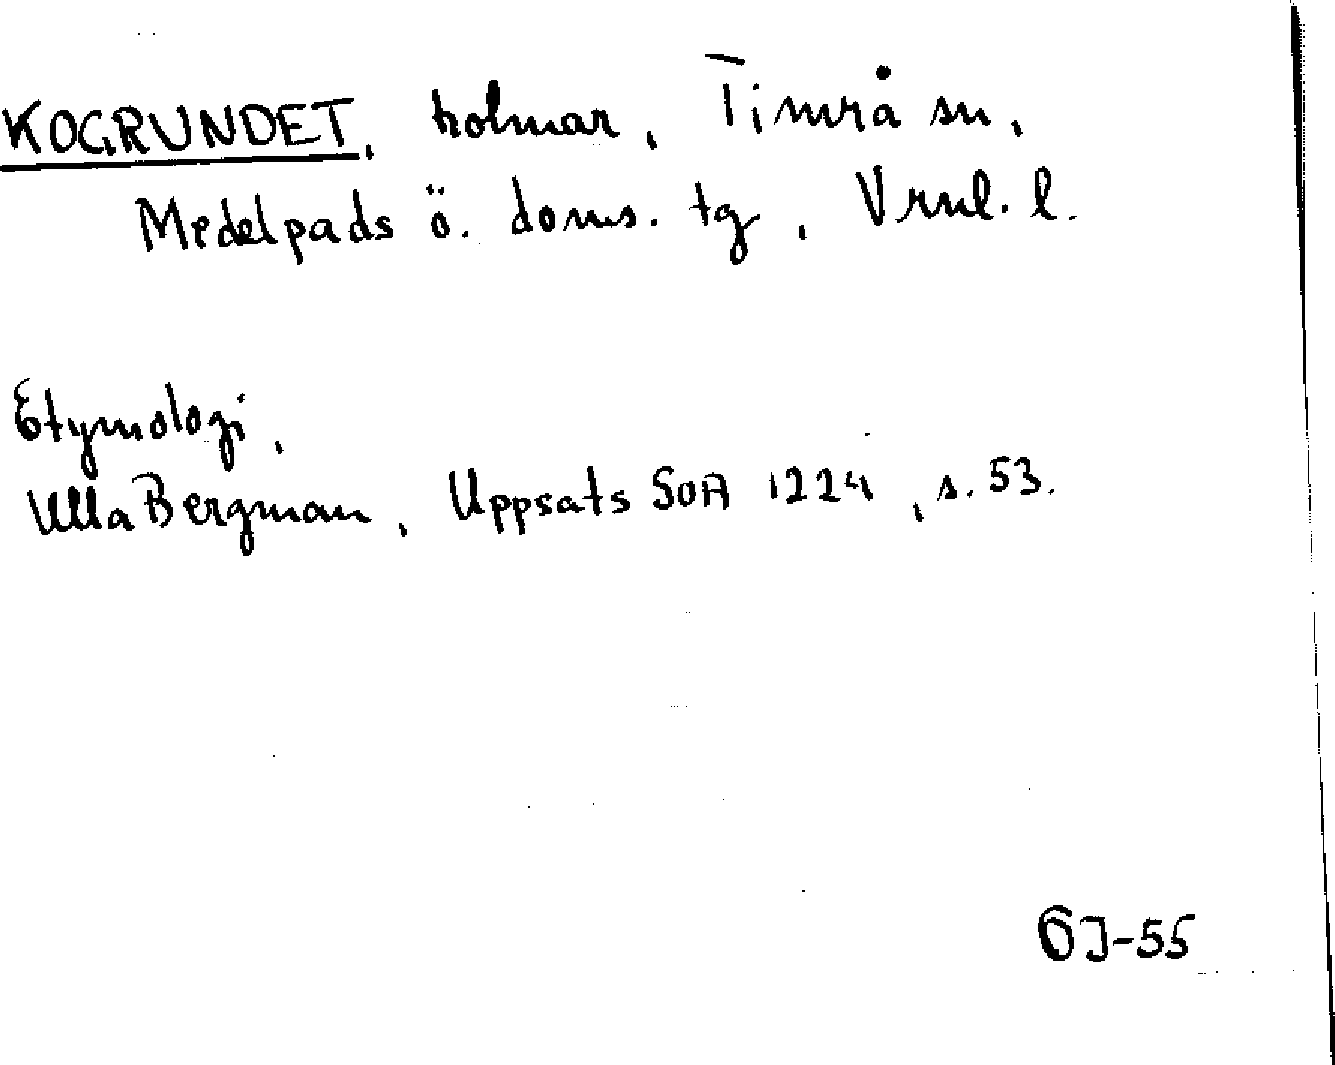 KOGRUNDET, holmar, Timrå sn,
Medelpads ö. doms. tg, Vrnl. l.
Etymologi,
Ulla Bergman, Uppsats SOA 1224, s. 53.
6J-55